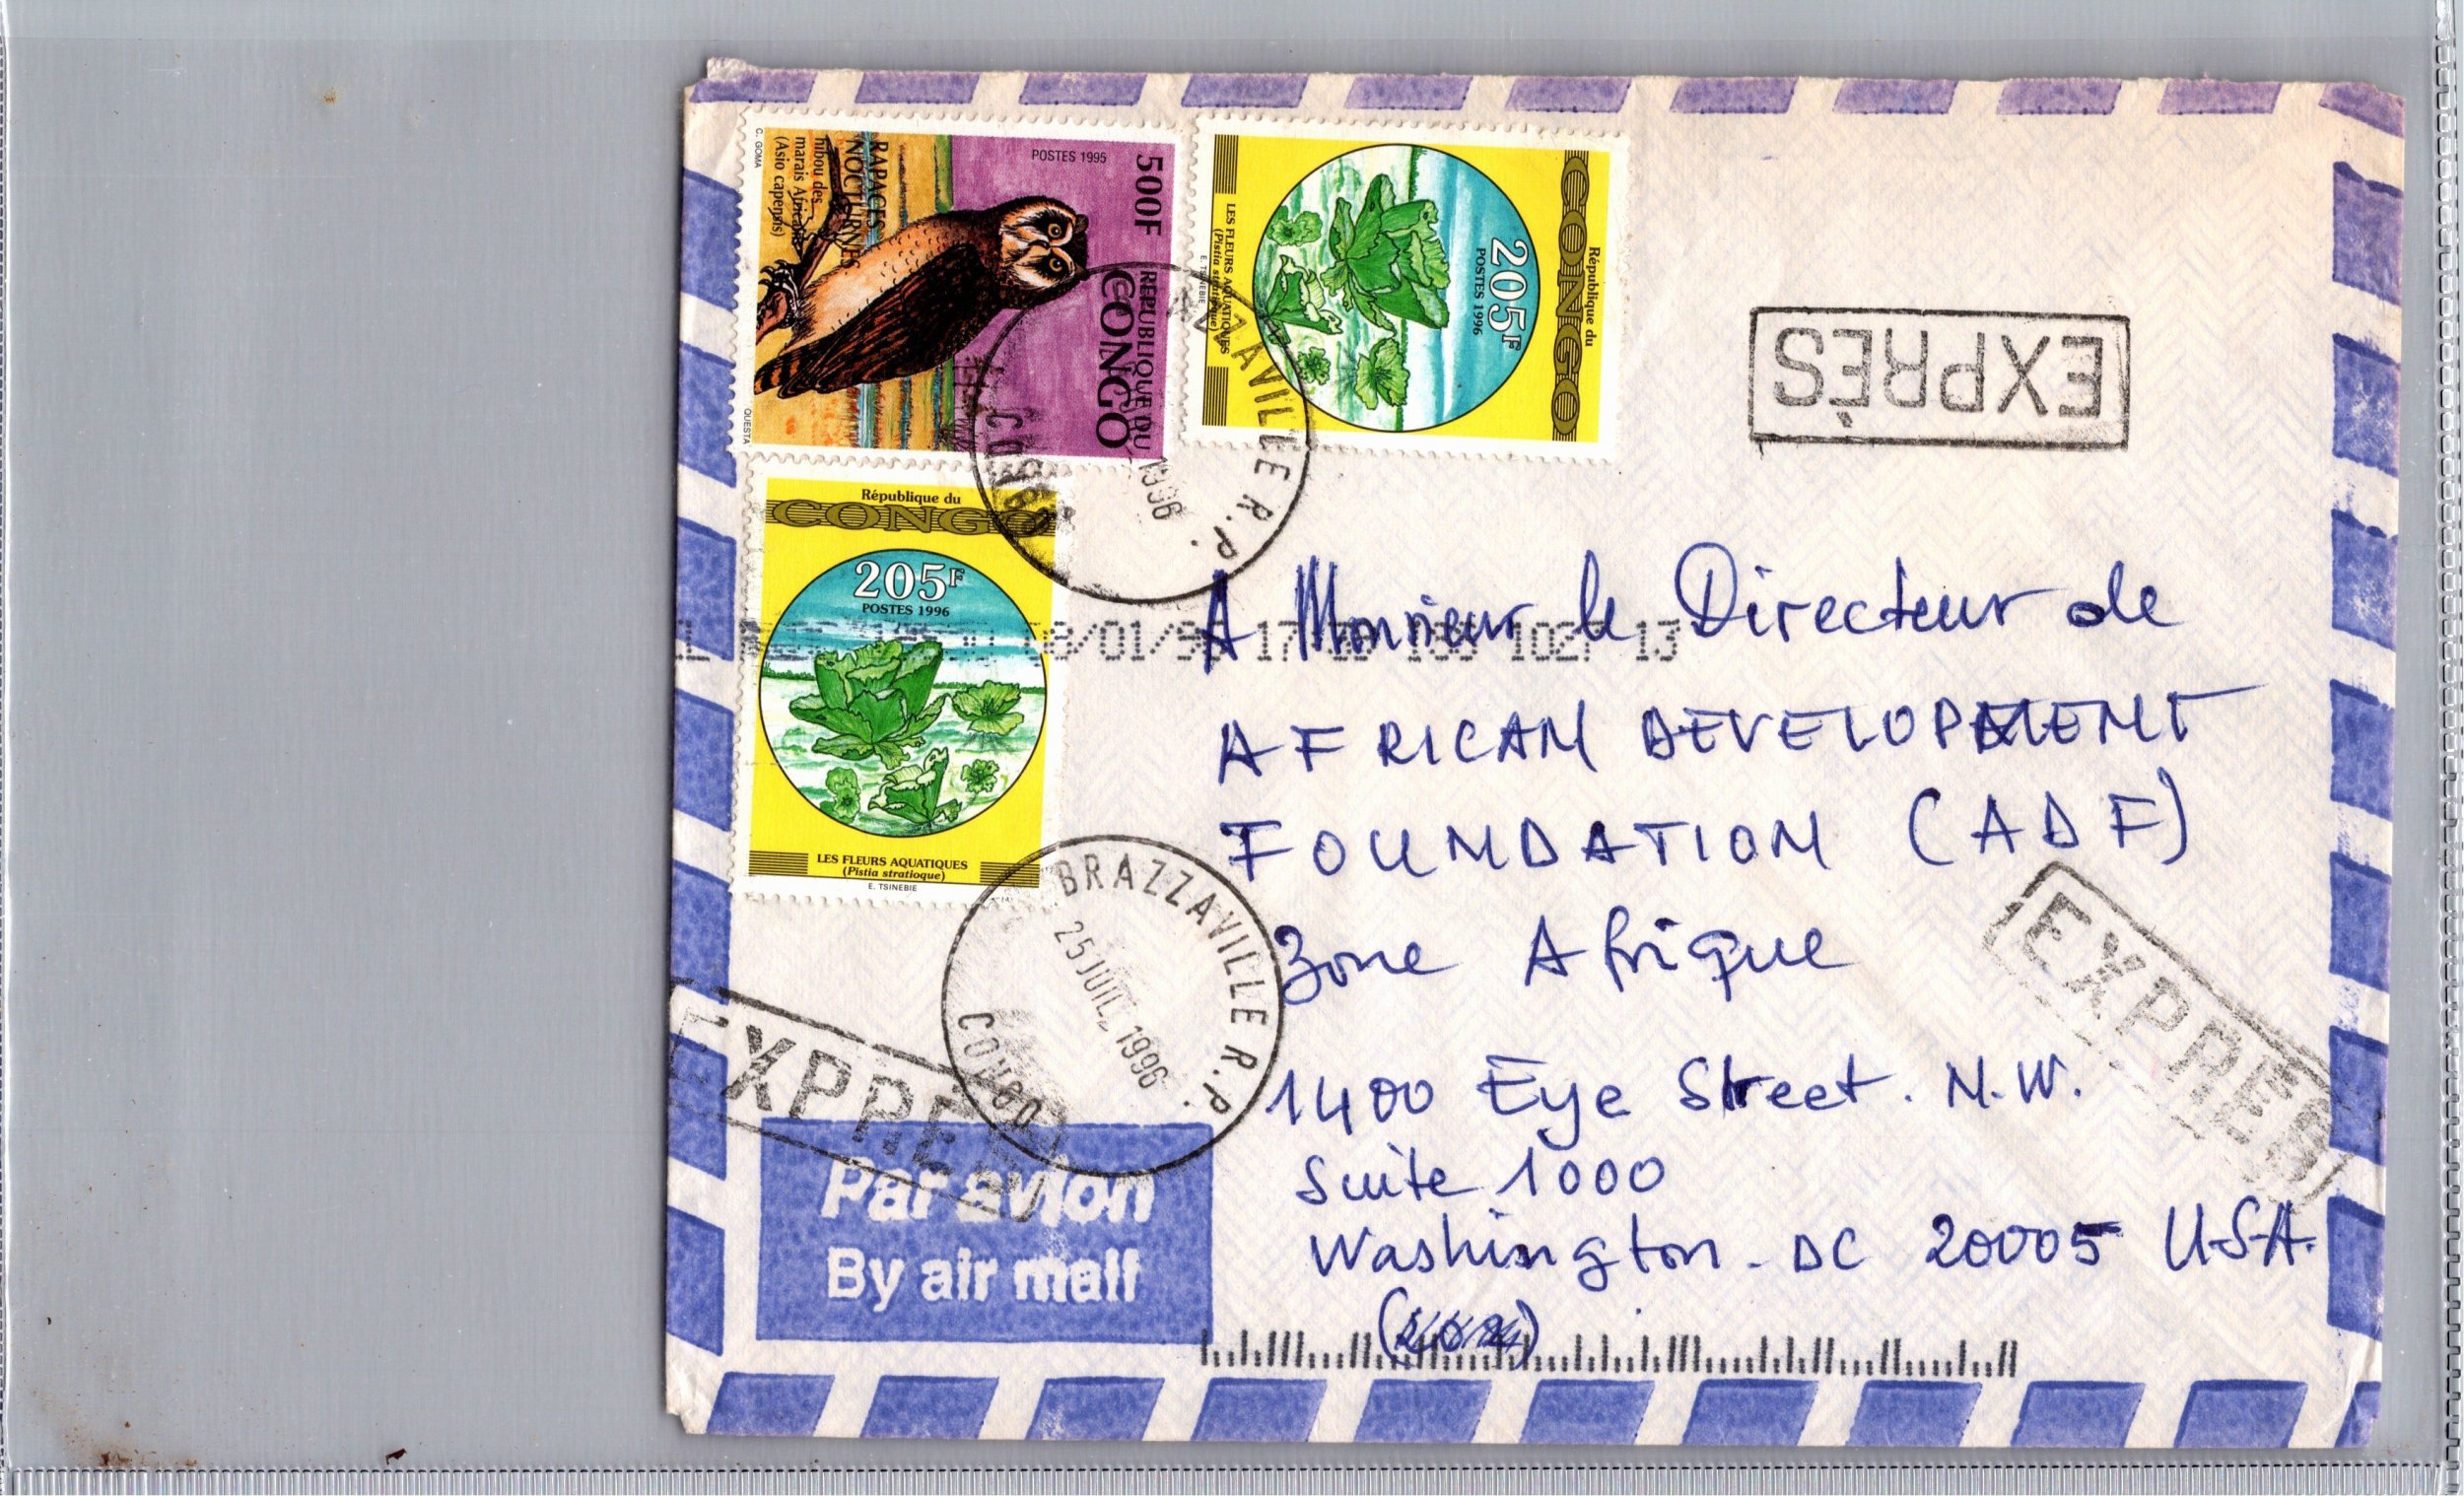 POSTES 1995
500F
REPUBLIQUE DU
CONGO
RAPACES
NOCTURNES
hibou des
marais Africain
(Asio capensis)
C. GOMA
QUESTA
République du
CONGO
205F
POSTES 1996
LES FLEURS AQUATIQUES
(Pistia stratioque)
E. TSINEBIE
EXPRÈS
ZZAVILLE R.P.
1996
CONGO
République du
CONGO
205F
POSTES 1996
LES FLEURS AQUATIQUES
(Pistia stratioque)
E. TSINEBIE
08/01/96 17 1027 13
A Monsieur le Directeur de
AFRICAN DEVELOPMENT
FOUNDATION (ADF)
Zone Afrique
1400 Eye Street. N.W.
Suite 1000
Washington - DC 20005 USA.
BRAZZAVILLE R.P.
25 JUIL 1996
CONGO
EXPRÈS
EXPRÈS
Par avion
By air mail